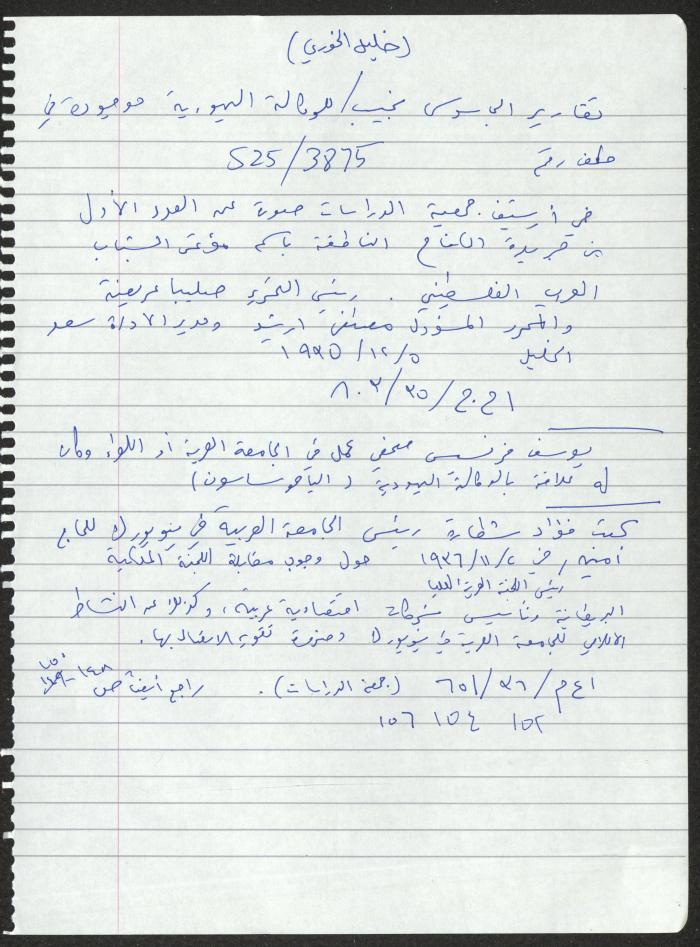 (خليل الخوري)
تقارير الجاسوس نجيب / للوكالة اليهودية موجودة في
ملف رقم S25/3875
في أرشيف جمعية الدراسات صورة عن العدد الأول
من جريدة الكفاح الناطقة باسم مؤتمر الشباب
العربي الفلسطيني. رئيس التحرير صليبا عريضة
والمحرر المسؤول مصطفى ارشيد ومدير الادارة سعد
الخليل ١٩٣٥/١٢/٥
ا ح.ج/٣٥/٨٠٣
يوسف فرنسيس صحفي عمل في الجامعة العربية أو اللواء وكان
له علاقة بالوكالة اليهودية (الياهو ساسون)
كتب فؤاد شطارة رئيس الجامعة العربية في نيويورك للحاج
أمين، في ١٩٣٦/١١/٢ حول وجوب مقابلة اللجنة الملكية
رئيس اللجنة العربية العليا
البريطانية وتأسيس شركات اقتصادية عربية، وكذلك عن النشاط
للجامعة العربية في نيويورك وضرورة تقوية الاتصال بها.
ا ع م/٣٦/٦٥١ (جمعية الدراسات). راجع أيضا ص ١٤٨-١٤٩
١٥٢ ١٥٤ ١٥٦